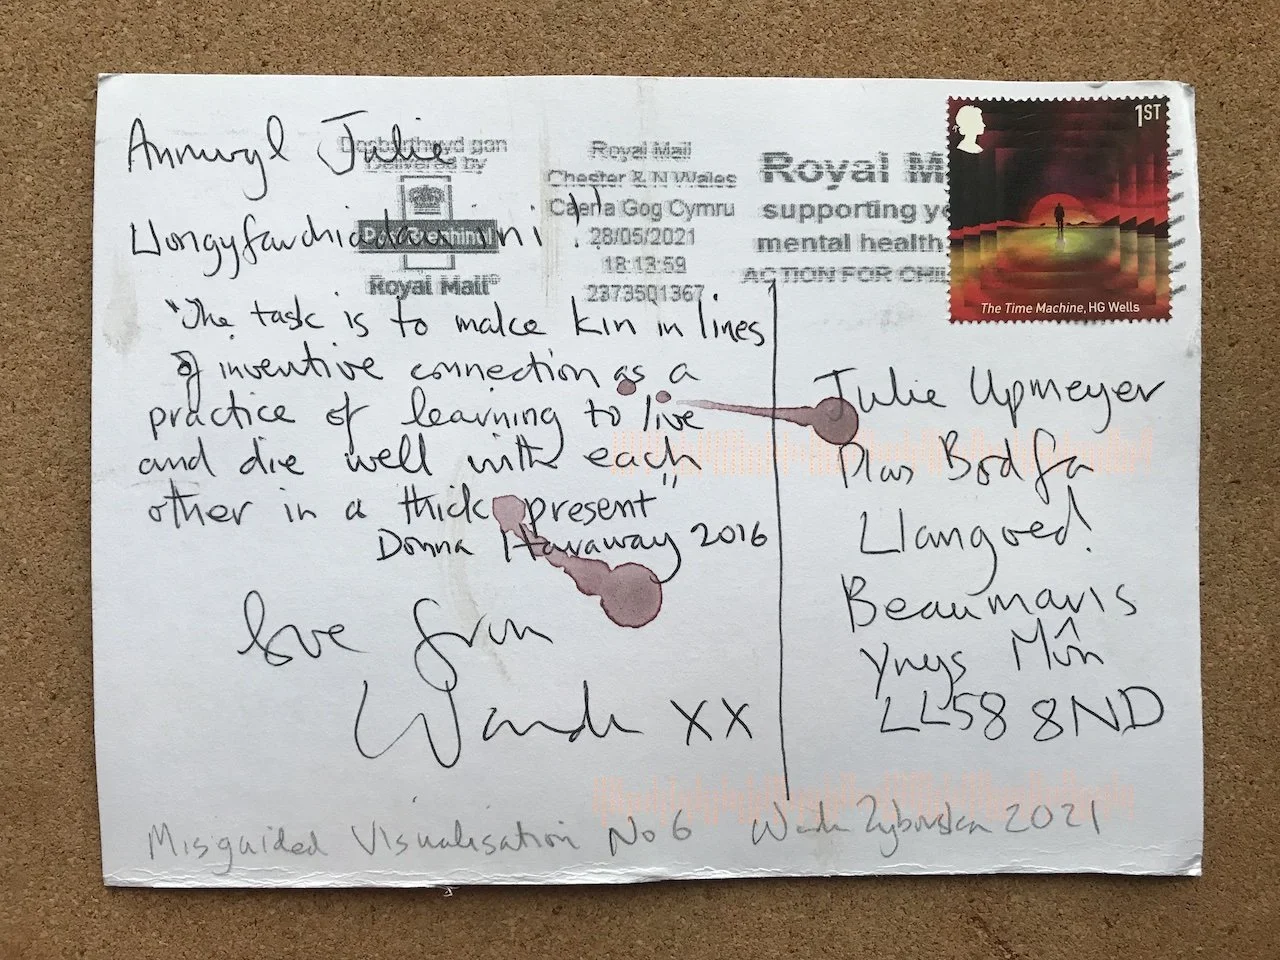 Annwyl Julie
Llongyfarchiadau i ni!!
"The task is to make kin in lines
of inventive connection as a
practice of learning to live
and die well with each
other in a thick present"
Donna Haraway 2016
love from
Wanda XX
Misguided Visualisation No 6 Wanda Zyborska 2021
Dosbarthwyd gan
Delivered by
Royal Mail®
Royal Mail
Chester & N Wales
Caer a Gog Cymru
28/05/2021
18:13:59
2373501367
Royal M
supporting yo
mental health
ACTION FOR CHIL
1ST
The Time Machine, HG Wells
Julie Upmeyer
Plas Bodfa
Llangoed
Beaumaris
Ynys Môn
LL58 8ND